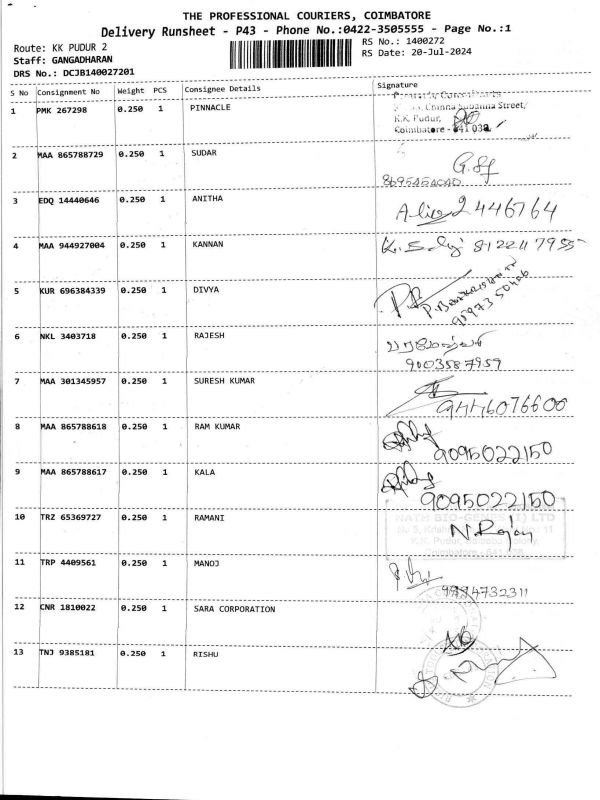 THE PROFESSIONAL COURIERS, COIMBATORE
Delivery Runsheet - P43 - Phone No.:0422-3505555 - Page No.:1
Route: KK PUDUR 2
RS No.: 1400272
Staff: GANGADHARAN
RS Date: 20-Jul-2024
DRS No.: DCJB140027201
S No Consignment No Weight PCS Consignee Details Signature
1 PMK 267298 0.250 1 PINNACLE
Chinna Subanna Street,
K.K. Pudur,
Coimbatore - 641 038
2 MAA 865788729 0.250 1 SUDAR
3 EDQ 14440646 0.250 1 ANITHA
2446764
4 MAA 944927004 0.250 1 KANNAN
5 KUR 696384339 0.250 1 DIVYA
6 NKL 3403718 0.250 1 RAJESH
9003587959
7 MAA 301345957 0.250 1 SURESH KUMAR
9446076600
8 MAA 865788618 0.250 1 RAM KUMAR
9095022150
9 MAA 865788617 0.250 1 KALA
9095022150
10 TRZ 65369727 0.250 1 RAMANI
NATH BIO-GENES (I) LTD
N. Rajan
K.K. Pudur
Coimbatore - 641
11 TRP 4409561 0.250 1 MANOJ
9994732311
12 CNR 1810022 0.250 1 SARA CORPORATION
13 TNJ 9385181 0.250 1 RISHU